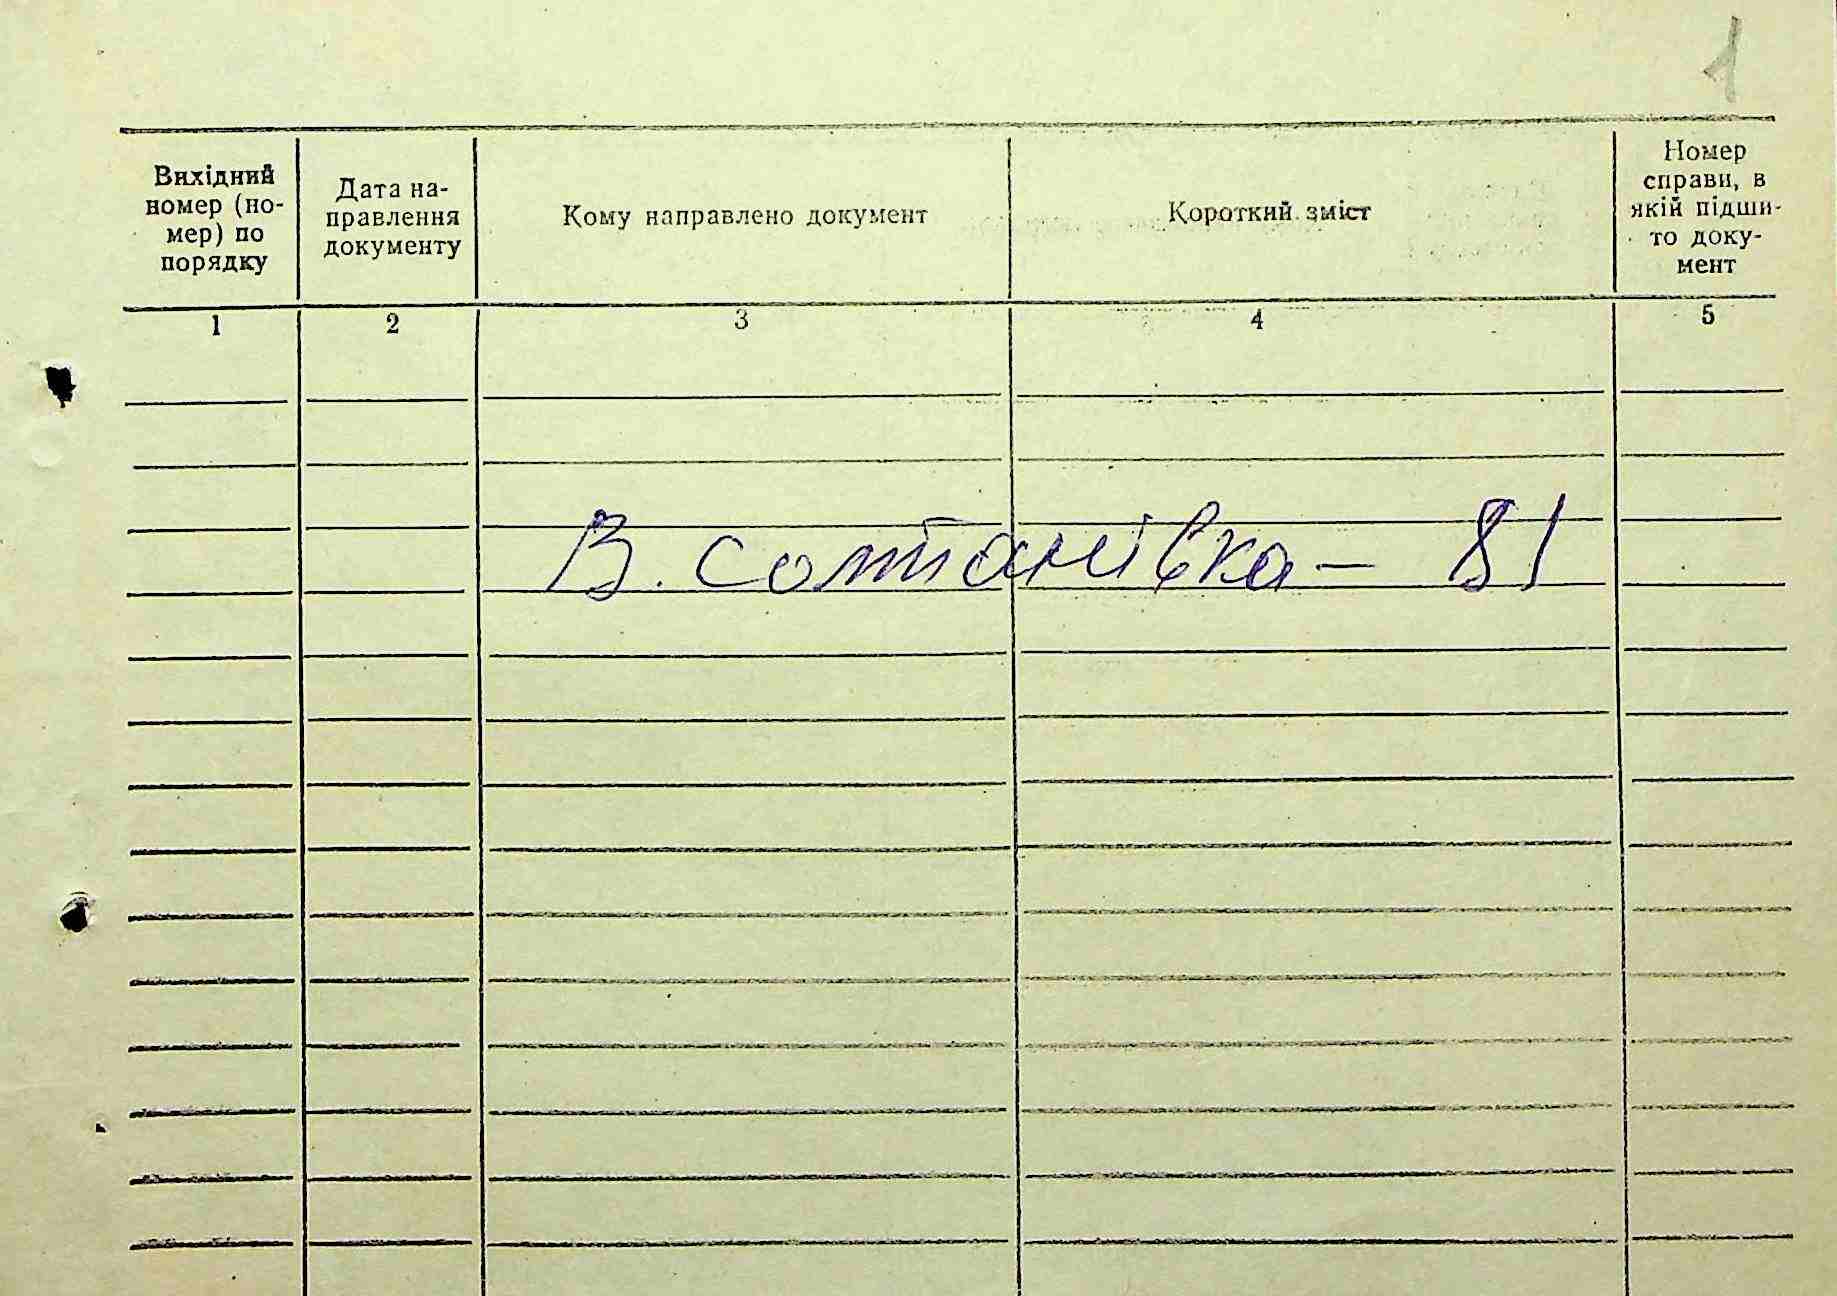 1
Вихідний номер (но-
мер) по
порядку
Дата на-
правлення
документу
Кому направлено документ
Короткий зміст
Номер
справи, в
якій підши-
то доку-
мент
1 2 3 4 5
В. солтанівка – 81